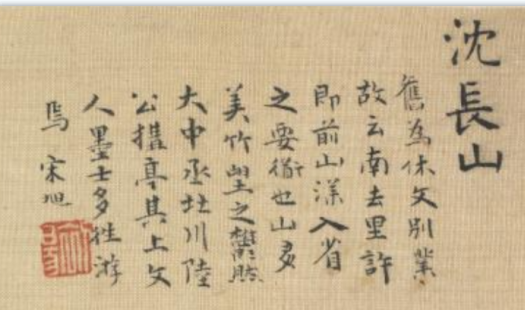 沈長山
舊為休文別業
故云南去里許
即前山漾入省
之要衝也山多
美竹望之鬱然
大中丞北川陸
公搆亭其上文
人墨士多往游
焉 宋旭